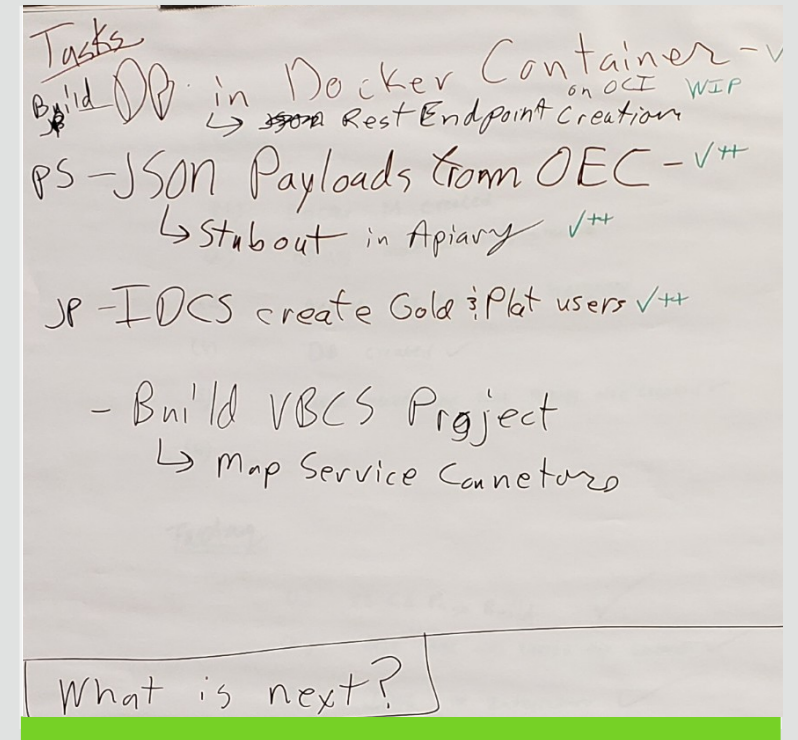 Tasks
Build DB in Docker Container - √
on OCI WIP
JP ↳ Rest Endpoint Creation
PS - JSON Payloads from OEC - √++
↳ Stub out in Apiary √++
JP - IDCS create Gold & Plat users √++
- Build VBCS Project
↳ Map Service Connetors
What is next?